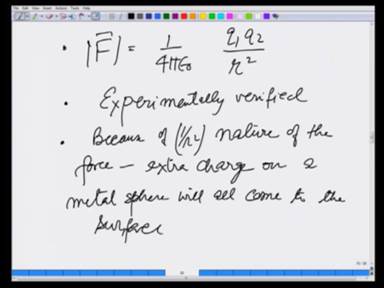 · |F⃗| = 1/4πε₀ q₁q₂/r²
· Experimentally verified
· Because of (1/r²) nature of the
force – extra charge on a
metal sphere will all come to the
surface